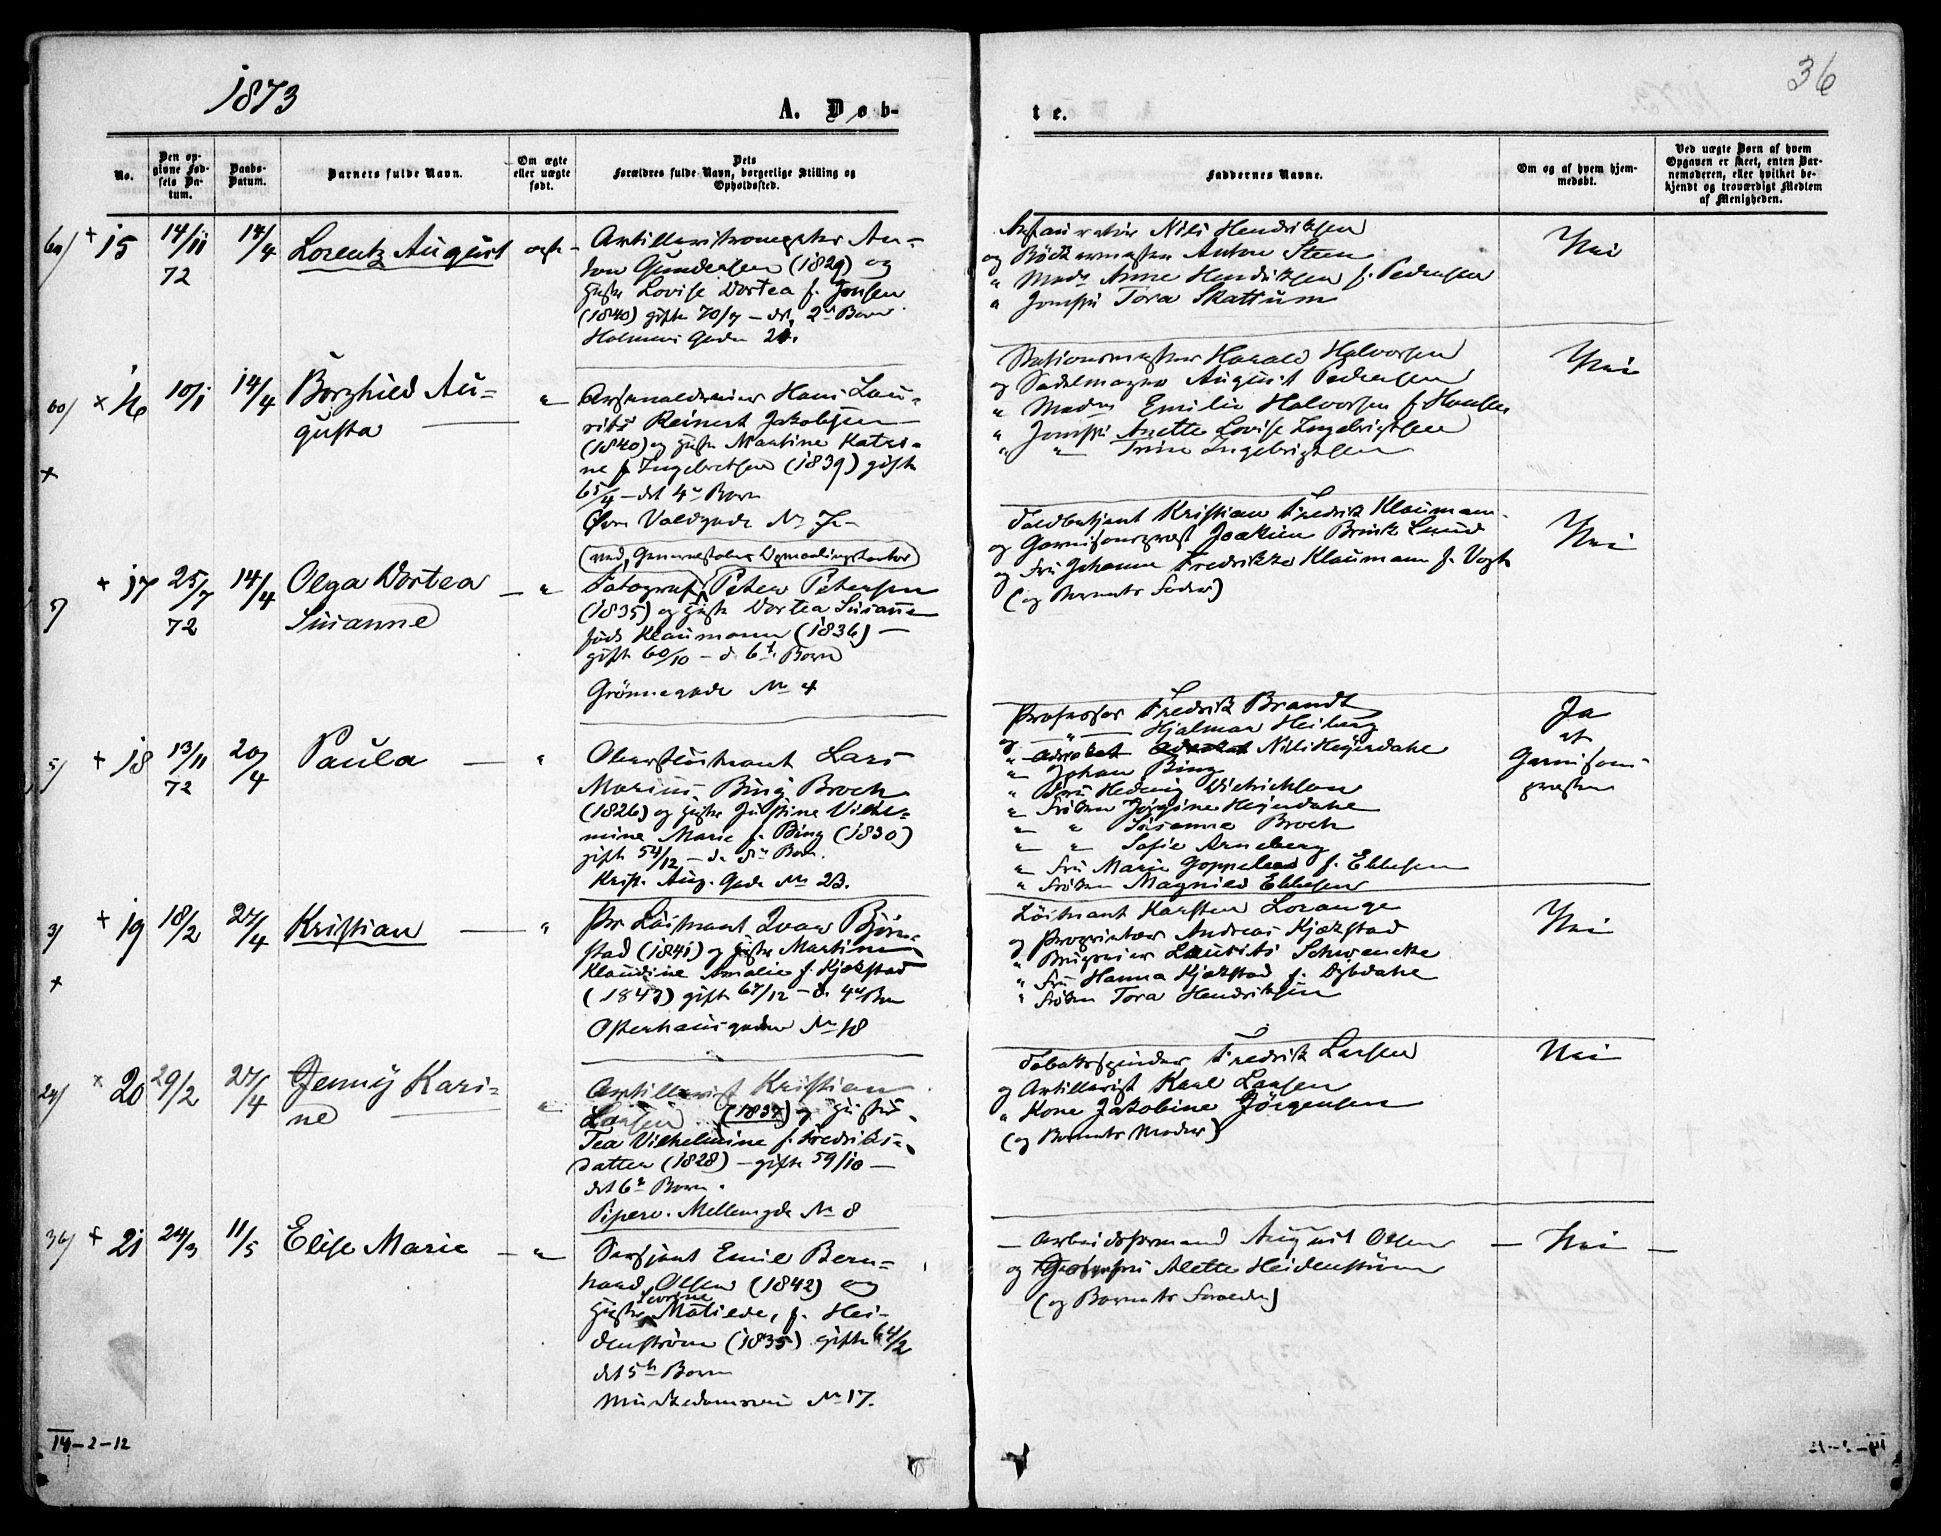 1873
36
A. Døb-
te.
No.
Den op-
givne Fød-
sels Da-
tum.
Daabs-
Datum.
Barnets fulde Navn.
Om ægte
eller uægte
født.
Dets
Forældres fulde Navn, borgerlige Stilling og
Opholdssted.
Faddernes Navne.
Om og af hvem hjem-
medøbt.
Ved uægte Børn af hvem
Opgaven er skeet, enten Bar-
nemoderen, eller hvilket be-
kjendt og troværdigt Medlem
af Menigheden.
+ 15
14/11
72
14/4
Lorentz August
ægte
An-
ton Gundersen (1829) og
Hustr Lovise Dortea f. Jonsen
(1840) gifte 70/7 – det 2 Barn
Holmens Gade 21.
Nils Hendriksen
og Bødkermester Anton Steen
" Mad. Anne Hendriksen f. Pedersen
" Jomfru Tora Skattum
Nei
60/ × 16
10/1
14/4
Borghild Au-
gusta
"
Arsenaldreier Hans Lau-
rits Reinert Jakobsen
(1840) og Hustr Martine Katri-
ne f. Ingebretsen (1839) gifte
65/4 – det 4 Barn
Øvre Voldgade No 7
Stasionsmester Harald Halvorsen
og Sadelmager August Pedersen
" Madm Emilie Halvorsen f. Hansen
" Jomfru Anette Lovise Ingebrigtsen
" " Trine Ingebrigtsen
Nei
+
5/ + 17
25/7
72
14/4
Olga Dortea
Susanne
"
(ved Generalstabens Opmaalingskontor)
Fotograf Peter Petersen
(1835) og Hustr Dortea Susanne
født Klaumann (1836) –
gift 60/10 – d. 6t Barn
Grönnegade No 4
Toldbetjent Kristian Fredrik Klaumann
og Garnisonsprest Joakim Brink Lund
og Fru Johanne Fredrikke Klaumann f. Vogt
(og Barnets Fader)
Nei
5/ + 18
13/11
72
20/4
Paula
"
Oberstløitnant Lars
Marius Bing Broch
(1826) og Hustr Justine Vilhel-
mine Marie f. Bing (1830)
gift 54/12 – d. Barn.
Krist. Aug. Gade No 23.
Professor Fredrik Brandt
og " Hjalmar Heiberg
" Advokat Nils Heyerdahl
" Johan Bing
" Fru Hedvig Dietrichson
" Frøken Jørgine Heyerdahl
" " Susanne Broch
" " Sofie Arneberg
" Fru Marie f. Ebbesen
" Frøken Magnild Ebbesen
Ja
af
Garnisons-
presten
3/ + 19
18/2
27/4
Kristian
"
Pr. Löitnant Ivar Björn-
stad (1841) og Hustr Martine
Klaudine Amalie f. Kjækstad
(1843) gift 67/12 – d. 4 Barn
Osterhausgaden No 18
Löitnant Karsten Lorange
og Proprietær Andreas Kjækstad
" Brugseier Laurits Schwencke
" Fru Hanna Kjækstad f. Dybdahl
" Frøken Tora Hendriksen
Nei
+
24/ × 20
29/2
27/4
Jenny Kari-
ne
"
Artillerist Kristian
Larsen (1837) og Hustru
Tea Vilhelmine f. Fredriks-
datter (1828) – gift 59/10 –
det 6 Barn.
Piperv. Mellemgde No 8
Tobakspinder Fredrik Larsen
og Artillerist Karl Larsen
" Kone Jakobine Jörgensen
(og Barnets Moder)
Nei
36/ + 21
24/3
11/5
Elise Marie
"
Sersjant Emil Bern-
hard Olsen (1842) og
Hustr Matilde, f. Hei-
denstrøm (1835) gift 64/2
det 5te Barn
Munkedamsveien No 17.
– Arbeidsformand August Olsen –
og Alette Heidenstrøm
(og Barnets Forældre)
Nei –
14-2-12